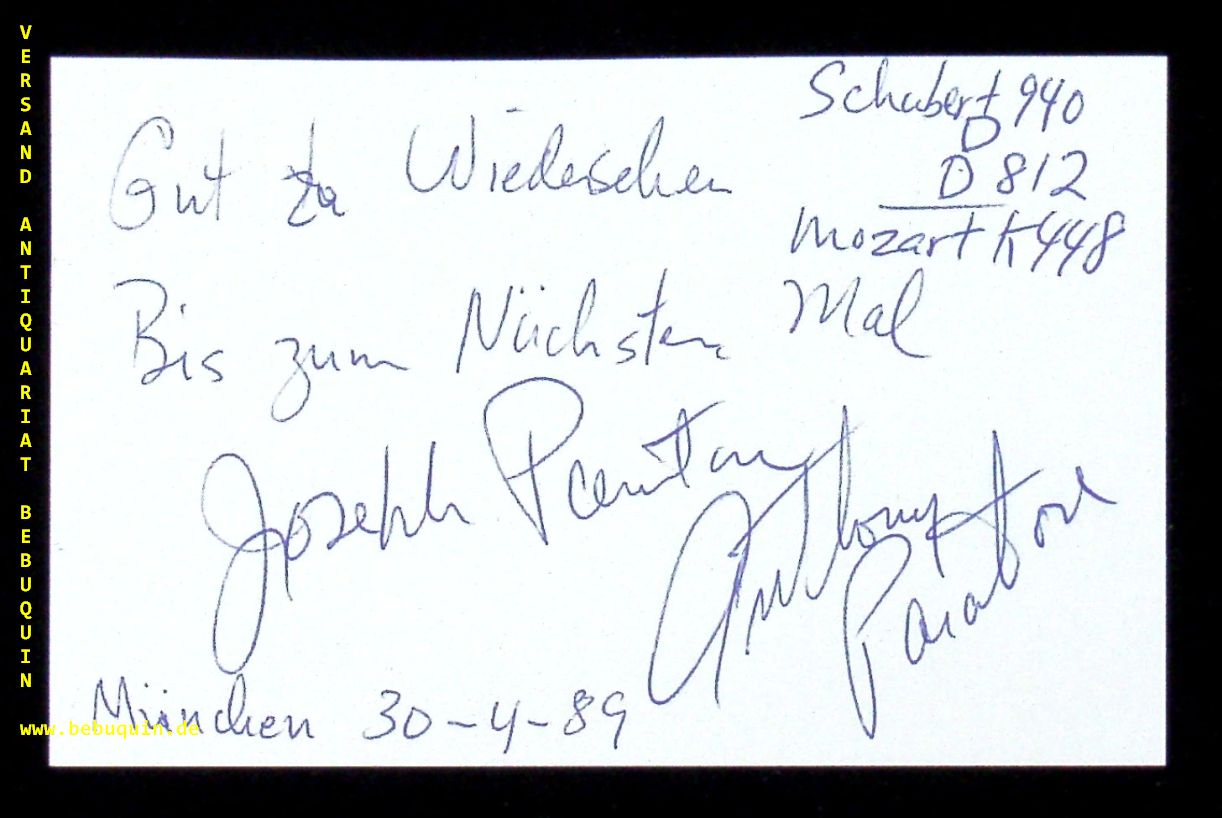 VERSAND ANTIQUARIAT BEBUQUIN
Schubert 940
D
D 812
Mozart K448
Gut zu Wiedersehen
Bis zum Nächsten Mal
Joseph Paratore
Anthony Paratore
München 30-4-89
www.bebuquin.de